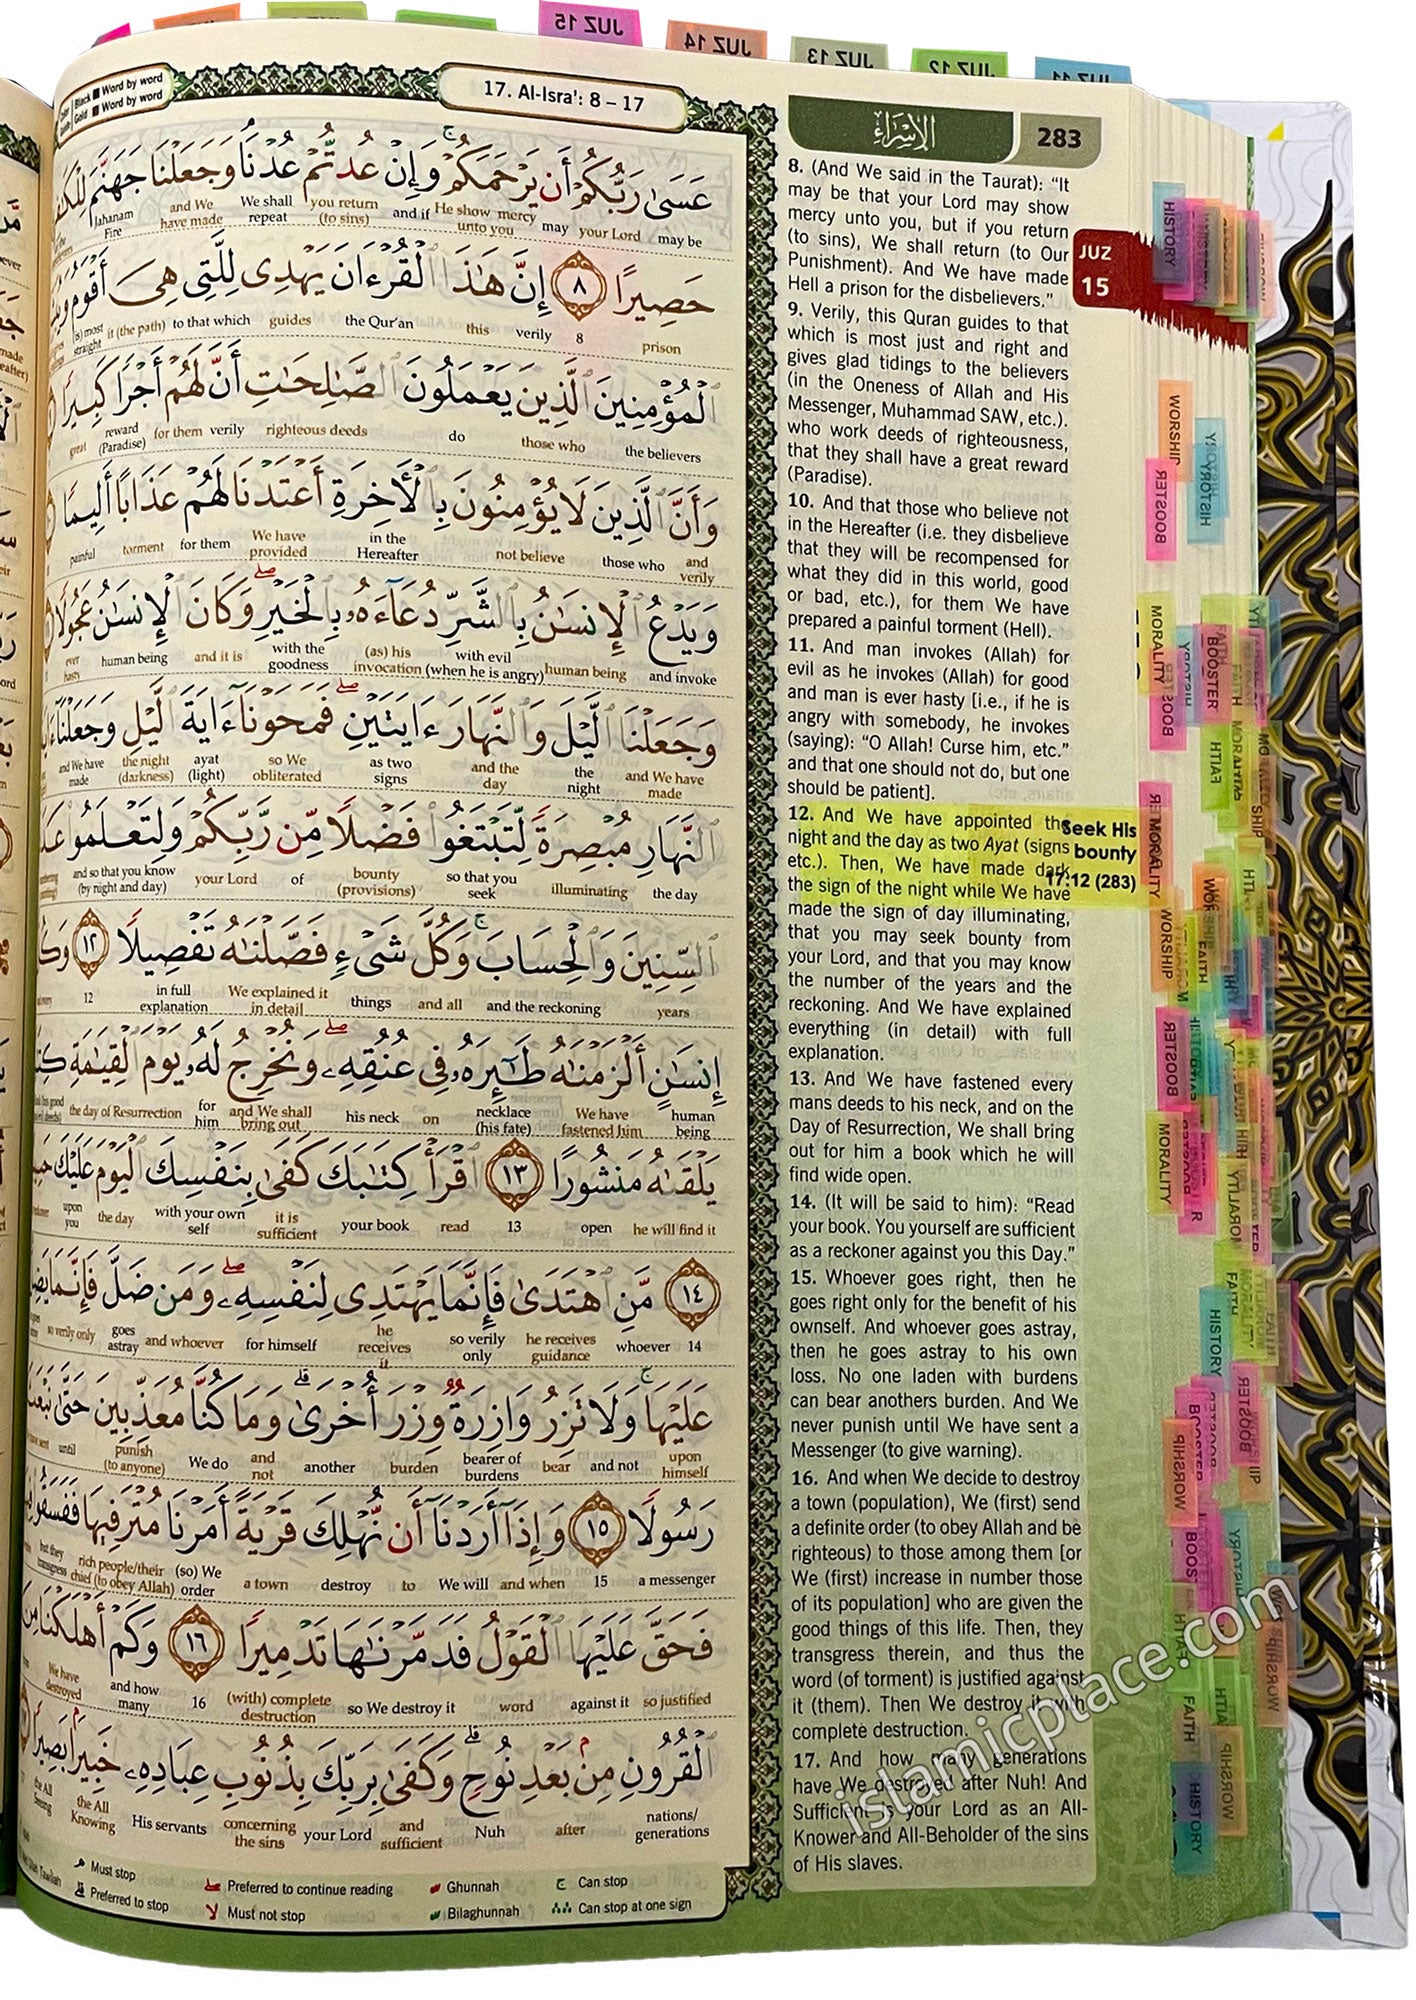 JUZ 15
JUZ 14
JUZ 13
JUZ 12
JUZ 11
Black Word by word
Gold Word by word
17. Al-Isra': 8 – 17
الإسراء
283
عَسَىٰ رَبُّكُمْ أَن يَرْحَمَكُمْ وَإِنْ عُدتُّمْ عُدْنَا وَجَعَلْنَا جَهَنَّمَ
may be your Lord may He show mercy unto you and if you return (to sins) We shall repeat and We have made Jahanam Fire
حَصِيرًا ٨ إِنَّ هَٰذَا الْقُرْءَانَ يَهْدِى لِلَّتِى هِىَ أَقْوَمُ
prison 8 verily this the Qur'an guides to that which it (the path) (is) most straight
الْمُؤْمِنِينَ الَّذِينَ يَعْمَلُونَ الصَّٰلِحَٰتِ أَنَّ لَهُمْ أَجْرًا كَبِيرًا
the believers those who do righteous deeds verily for them reward (Paradise) great
وَأَنَّ الَّذِينَ لَا يُؤْمِنُونَ بِالْأَخِرَةِ أَعْتَدْنَا لَهُمْ عَذَابًا أَلِيمًا
and verily those who not believe in the Hereafter We have provided for them torment painful
وَيَدْعُ الْإِنسَٰنُ بِالشَّرِّ دُعَآءَهُۥ بِالْخَيْرِ وَكَانَ الْإِنسَٰنُ عَجُولًا
and invoke human being with evil (when he is angry) (as) his invocation with the goodness and it is human being ever hasty
وَجَعَلْنَا الَّيْلَ وَالنَّهَارَ ءَايَتَيْنِ فَمَحَوْنَآ ءَايَةَ الَّيْلِ وَجَعَلْنَآ
and We have made the night and the day as two signs so We obliterated ayat (light) the night (darkness) and We have made
النَّهَارِ مُبْصِرَةً لِّتَبْتَغُوا فَضْلًا مِّن رَّبِّكُمْ وَلِتَعْلَمُوا
the day illuminating so that you seek bounty (provisions) of your Lord and so that you know (by night and day)
السِّنِينَ وَالْحِسَابَ وَكُلَّ شَىْءٍ فَصَّلْنَٰهُ تَفْصِيلًا ١٢
years and the reckoning and all things We explained it in detail in full explanation 12
إِنسَٰنٍ أَلْزَمْنَٰهُ طَٰٓئِرَهُۥ فِى عُنُقِهِۦ وَنُخْرِجُ لَهُۥ يَوْمَ الْقِيَٰمَةِ
human being We have fastened him necklace (his fate) on his neck and We shall bring out for him the day of Resurrection
يَلْقَىٰهُ مَنشُورًا ١٣ اقْرَأْ كِتَٰبَكَ كَفَىٰ بِنَفْسِكَ الْيَوْمَ عَلَيْكَ
he will find it open 13 read your book it is sufficient with your own self the day upon you
١٤ مَّنِ اهْتَدَىٰ فَإِنَّمَا يَهْتَدِى لِنَفْسِهِۦ وَمَن ضَلَّ فَإِنَّمَا
14 whoever he receives guidance so verily only he receives it for himself and whoever goes astray so verily only
عَلَيْهَا وَلَا تَزِرُ وَازِرَةٌ وِزْرَ أُخْرَىٰ وَمَا كُنَّا مُعَذِّبِينَ حَتَّىٰ
upon himself and not bear bearer of burdens burden another and not We do punish (to anyone) until
رَسُولًا ١٥ وَإِذَآ أَرَدْنَآ أَن نُّهْلِكَ قَرْيَةً أَمَرْنَا مُتْرَفِيهَا
a messenger 15 and when We will to destroy a town (so) We order rich people/their chief (to obey Allah) but they transgress
فَحَقَّ عَلَيْهَا الْقَوْلُ فَدَمَّرْنَٰهَا تَدْمِيرًا ١٦ وَكَمْ أَهْلَكْنَا مِنَ
so justified against it word so We destroy it (with) complete destruction 16 and how many We have destroyed
الْقُرُونِ مِنۢ بَعْدِ نُوحٍ وَكَفَىٰ بِرَبِّكَ بِذُنُوبِ عِبَادِهِۦ خَبِيرًۢا بَصِيرًا
nations/ generations after Nuh and sufficient your Lord concerning the sins His servants the All Knowing the All Seeing
Must stop
Preferred to continue reading
Ghunnah
Can stop
Preferred to stop
Must not stop
Bilaghunnah
Can stop at one sign
8. (And We said in the Taurat): “It
may be that your Lord may show
mercy unto you, but if you return
(to sins), We shall return (to Our
Punishment). And We have made
Hell a prison for the disbelievers.”
9. Verily, this Quran guides to that
which is most just and right and
gives glad tidings to the believers
(in the Oneness of Allah and His
Messenger, Muhammad SAW, etc.).
who work deeds of righteousness,
that they shall have a great reward
(Paradise).
10. And that those who believe not
in the Hereafter (i.e. they disbelieve
that they will be recompensed for
what they did in this world, good
or bad, etc.), for them We have
prepared a painful torment (Hell).
11. And man invokes (Allah) for
evil as he invokes (Allah) for good
and man is ever hasty [i.e., if he is
angry with somebody, he invokes
(saying): “O Allah! Curse him, etc.”
and that one should not do, but one
should be patient].
12. And We have appointed the
night and the day as two Ayat (signs
etc.). Then, We have made dark
the sign of the night while We have
made the sign of day illuminating,
that you may seek bounty from
your Lord, and that you may know
the number of the years and the
reckoning. And We have explained
everything (in detail) with full
explanation.
13. And We have fastened every
mans deeds to his neck, and on the
Day of Resurrection, We shall bring
out for him a book which he will
find wide open.
14. (It will be said to him): “Read
your book. You yourself are sufficient
as a reckoner against you this Day.”
15. Whoever goes right, then he
goes right only for the benefit of his
ownself. And whoever goes astray,
then he goes astray to his own
loss. No one laden with burdens
can bear anothers burden. And We
never punish until We have sent a
Messenger (to give warning).
16. And when We decide to destroy
a town (population), We (first) send
a definite order (to obey Allah and be
righteous) to those among them [or
We (first) increase in number those
of its population] who are given the
good things of this life. Then, they
transgress therein, and thus the
word (of torment) is justified against
it (them). Then We destroy it with
complete destruction.
17. And how many generations
have We destroyed after Nuh! And
Sufficient is your Lord as an All-
Knower and All-Beholder of the sins
of His slaves.
JUZ
15
Seek His
bounty
17:12 (283)
HISTORY
WORSHIP
HISTORY
BOOSTER
MORALITY
BOOSTER
FAITH
MORALITY
WORSHIP
FAITH
BOOSTER
MORALITY
FAITH
HISTORY
BOOSTER
WORSHIP
FAITH
WORSHIP
HISTORY
islamicplace.com